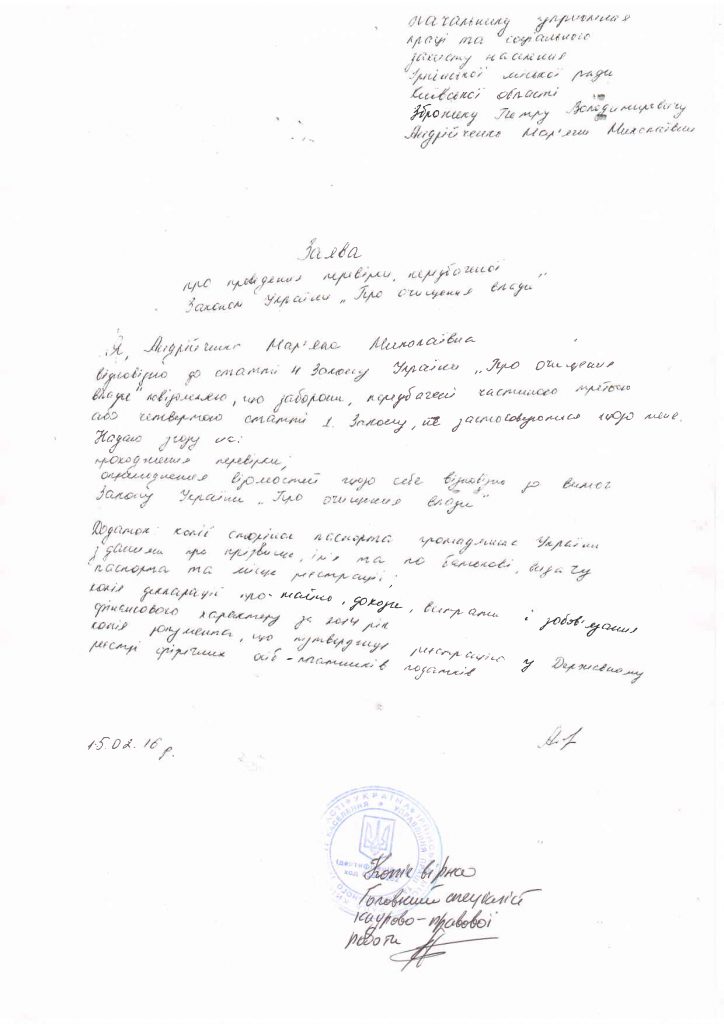 Начальнику управління
праці та соціального
захисту населення
Ірпінської міської ради
Київської області
Збронику Петру Володимировичу
Андрійченко Мар'яни Миколаївни
Заява
про проведення перевірки, передбаченої
Законом України „Про очищення влади"
Я, Андрійченко Мар'яна Миколаївна
відповідно до статті 4 Закону України „Про очищення
влади" повідомляю, що заборони, передбачені частиною третьою
або четвертою статті 1 Закону, не застосовуються щодо мене.
Надаю згоду на:
проходження перевірки;
оприлюднення відомостей щодо себе відповідно до вимог
Закону України „Про очищення влади"
Додатки: копії сторінок паспорта громадянина України
з даними про прізвище, ім'я та по батькові, видачу
паспорта та місце реєстрації;
копія декларації про майно, доходи, витрати і зобов'язання
фінансового характеру за рік
копія документа, що підтверджує реєстрацію у Державному
реєстрі фізичних осіб-платників податків
15.02.16 р.
УКРАЇНА
НАСЕЛЕННЯ
УПРАВЛІННЯ
код
Копія вірна
Головний спеціаліст
кадрово-правової
роботи